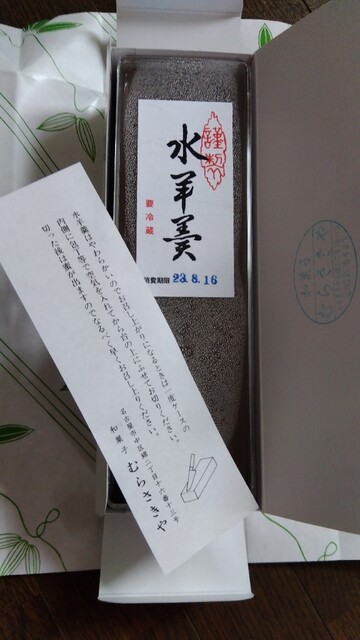 謹製
水羊羹
要冷蔵
消費期限 23.8.16
水羊羹はやわらかいのでお召し上がりになるときは一度ケースの
内側に包丁等で空気を入れてから台の上にふせてお切りください。
切った後は蜜が出ますのでなるべく早くお召し上りください。
名古屋市中区錦二丁目十六番十三号
和菓子 むらさきや
和菓子
むらさきや